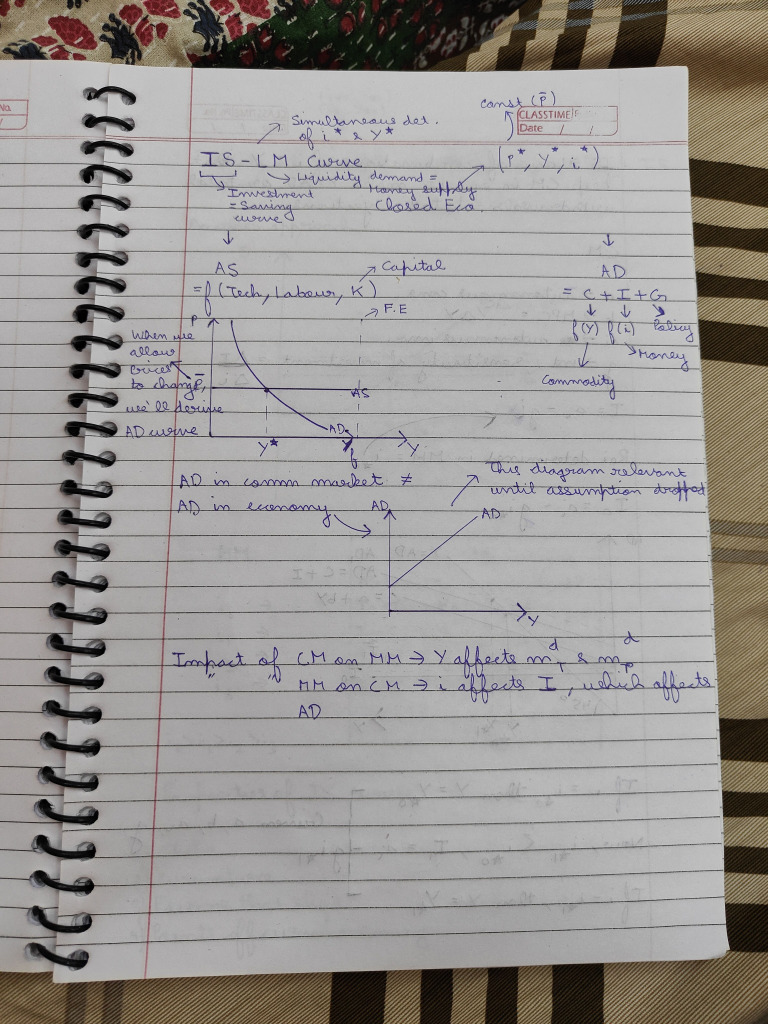 const (P̄)
CLASSTIME
Date / /
No.
/
Simultaneous det.
of i* & Y*
IS-LM Curve
(P*, Y*, i*)
Liquidity demand =
Money supply
Investment
= Saving
curve
Closed Eco.
AS
Capital
= f (Tech, Labour, K)
AD
= C + I + G
f(Y) f(i) Policy
Money
Commodity
F.E
P
When we
allow
prices
to change, P̄
we'll derive
AD curve
AS
AD
Y* Yf Y
AD in comm market ≠
AD in economy
This diagram relevant
until assumption dropped
AD
AD
Y
Impact of CM on MM → Y affects m^d_T & m^d_P
" " MM on CM → i affects I, which affects
AD